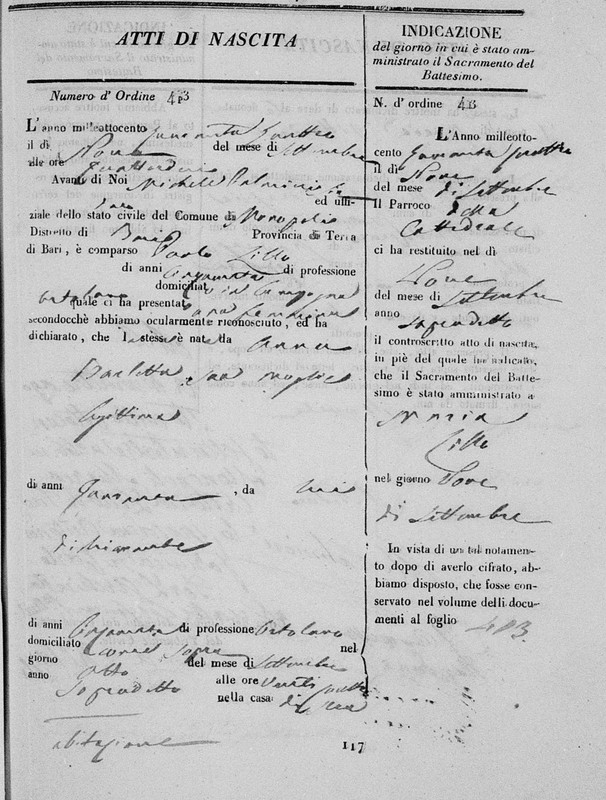 ATTI DI NASCITA
Numero d' Ordine 413
L'anno milleottocento quaranta quattro
il dì Nove del mese di Settembre
alle ore quattordici
Avanti di Noi Michele Palmieri
ed uffi-
ziale dello stato civile del Comune di Monopoli
Distretto di Bari Provincia di Terra
di Bari, è comparso Paolo Lillo
di anni cinquanta di professione
ortolano domiciliato in Campagna
quale ci ha presentato una femmina
secondocchè abbiamo ocularmente riconosciuto, ed ha
dichiarato, che la stessa è nata da Anna
Barletta sua moglie
legittima
di anni quaranta, da lui
dichiarante
di anni cinquanta di professione ortolano
domiciliato come sopra nel
giorno otto del mese di Settembre
anno sopradetto alle ore venti quattro
nella casa di sua
abitazione
INDICAZIONE
del giorno in cui è stato am-
ministrato il Sacramento del
Battesimo.
N. d' ordine 413
L'Anno milleotto-
cento quaranta quattro
il dì Nove
del mese di Settembre
Il Parroco della
Cattedrale
ci ha restituito nel dì
Nove
del mese di Settembre
anno sopradetto
il controscritto atto di nascita,
in piè del quale ha indicato,
che il Sacramento del Batte-
simo è stato amministrato a
Maria
Lillo
nel giorno Nove
di Settembre
In vista di un tal notamen-
to dopo di averlo cifrato, ab-
biamo disposto, che fosse con-
servato nel volume delli docu-
menti al foglio 413
117